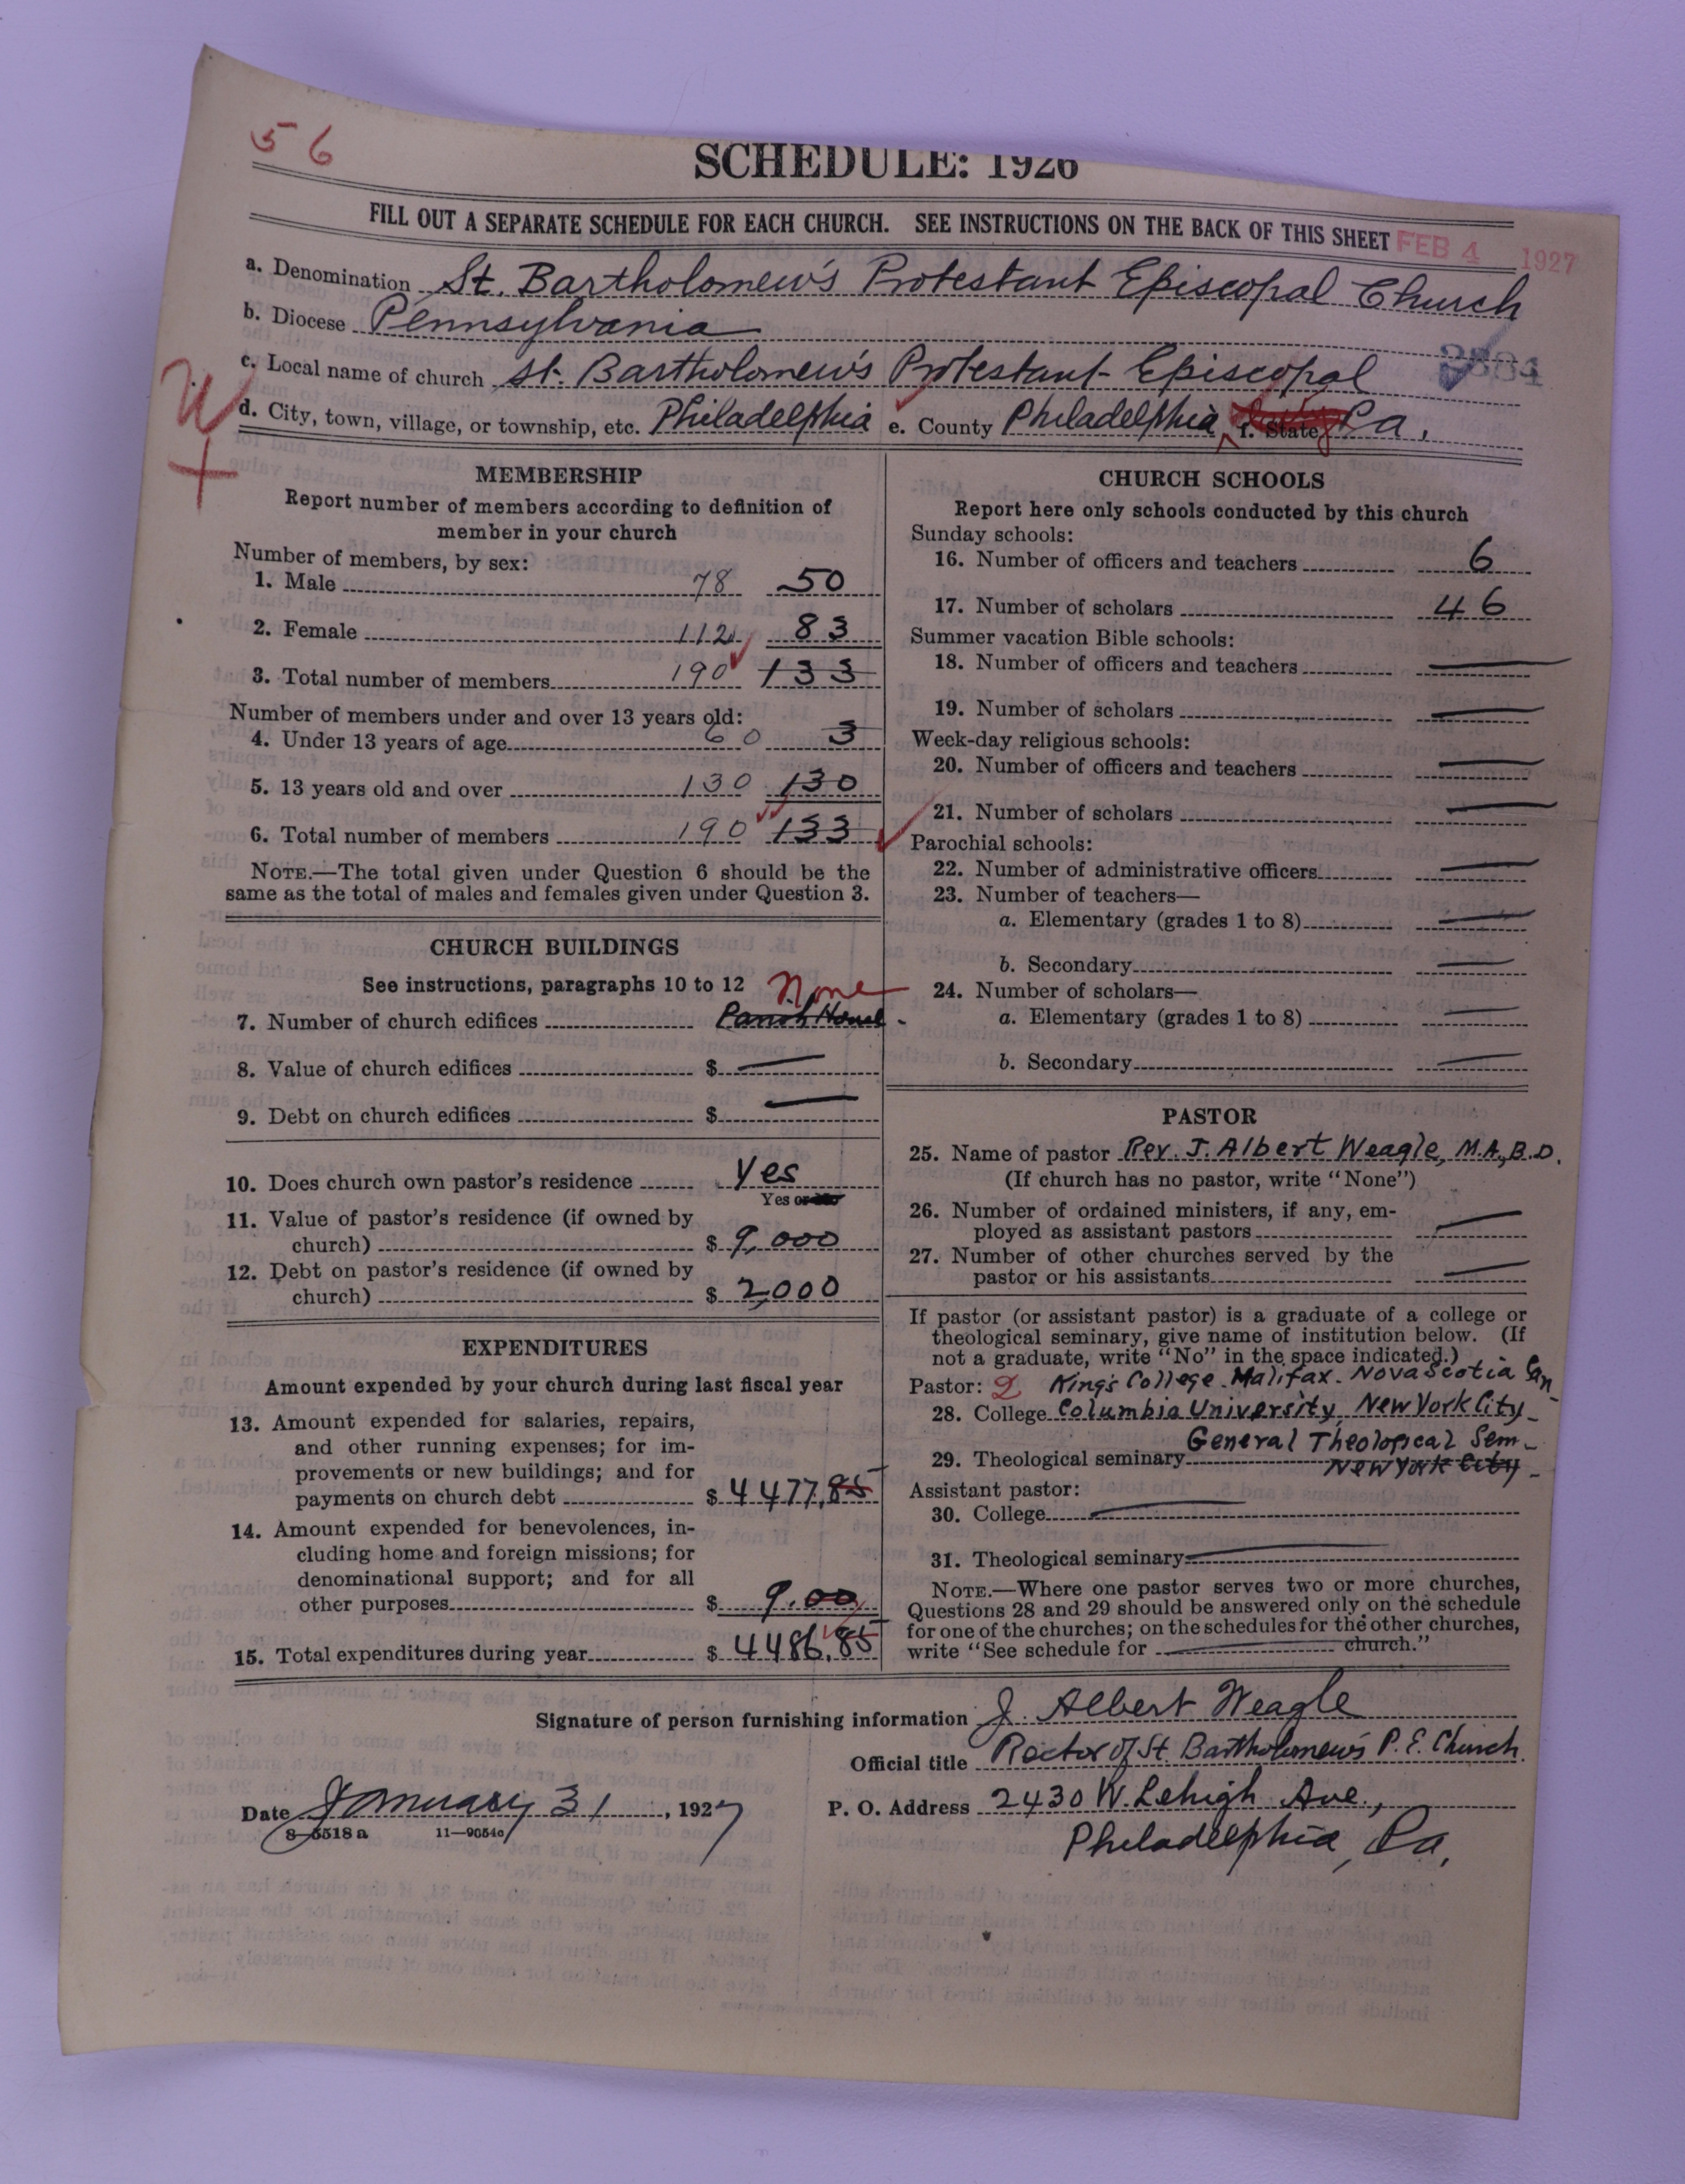 56
SCHEDULE: 1926
FILL OUT A SEPARATE SCHEDULE FOR EACH CHURCH. SEE INSTRUCTIONS ON THE BACK OF THIS SHEET FEB 4 1927
a. Denomination St. Bartholomew's Protestant Episcopal Church
b. Diocese Pennsylvania
c. Local name of church St. Bartholomew's Protestant Episcopal
d. City, town, village, or township, etc. Philadelphia e. County Philadelphia f. State Pa.
MEMBERSHIP
Report number of members according to definition of
member in your church
Number of members, by sex:
1. Male 78 50
2. Female 112 83
3. Total number of members 190 133
Number of members under and over 13 years old:
4. Under 13 years of age 60 3
5. 13 years old and over 130 130
6. Total number of members 190 133
NOTE.—The total given under Question 6 should be the
same as the total of males and females given under Question 3.
CHURCH BUILDINGS
See instructions, paragraphs 10 to 12 None
7. Number of church edifices Parish House
8. Value of church edifices $ —
9. Debt on church edifices $ —
10. Does church own pastor's residence Yes
Yes or No
11. Value of pastor's residence (if owned by
church) $ 9,000
12. Debt on pastor's residence (if owned by
church) $ 2,000
EXPENDITURES
Amount expended by your church during last fiscal year
13. Amount expended for salaries, repairs,
and other running expenses; for im-
provements or new buildings; and for
payments on church debt $ 4477.85
14. Amount expended for benevolences, in-
cluding home and foreign missions; for
denominational support; and for all
other purposes $ 9.00
15. Total expenditures during year $ 4486.85
CHURCH SCHOOLS
Report here only schools conducted by this church
Sunday schools:
16. Number of officers and teachers 6
17. Number of scholars 46
Summer vacation Bible schools:
18. Number of officers and teachers —
19. Number of scholars —
Week-day religious schools:
20. Number of officers and teachers —
21. Number of scholars —
Parochial schools:
22. Number of administrative officers —
23. Number of teachers—
a. Elementary (grades 1 to 8) —
b. Secondary —
24. Number of scholars—
a. Elementary (grades 1 to 8) —
b. Secondary —
PASTOR
25. Name of pastor Rev. J. Albert Weagle, M.A., B.D.
(If church has no pastor, write "None")
26. Number of ordained ministers, if any, em-
ployed as assistant pastors —
27. Number of other churches served by the
pastor or his assistants —
If pastor (or assistant pastor) is a graduate of a college or
theological seminary, give name of institution below. (If
not a graduate, write "No" in the space indicated.)
Pastor: 2 King's College. Halifax. Nova Scotia Can
28. College Columbia University, New York City
General Theological Sem.
29. Theological seminary New York City
Assistant pastor:
30. College —
31. Theological seminary —
NOTE.—Where one pastor serves two or more churches,
Questions 28 and 29 should be answered only on the schedule
for one of the churches; on the schedules for the other churches,
write "See schedule for — church."
Signature of person furnishing information J. Albert Weagle
Official title Rector of St. Bartholomew's P. E. Church.
Date January 31, 1927
P. O. Address 2430 W. Lehigh Ave.,
Philadelphia, Pa.
8-5518 a 11-9054c